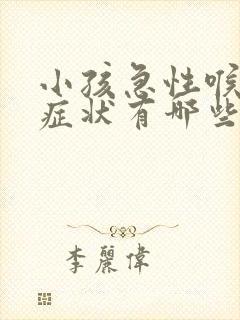 小孩急性喉
症状有哪些
李麗偉